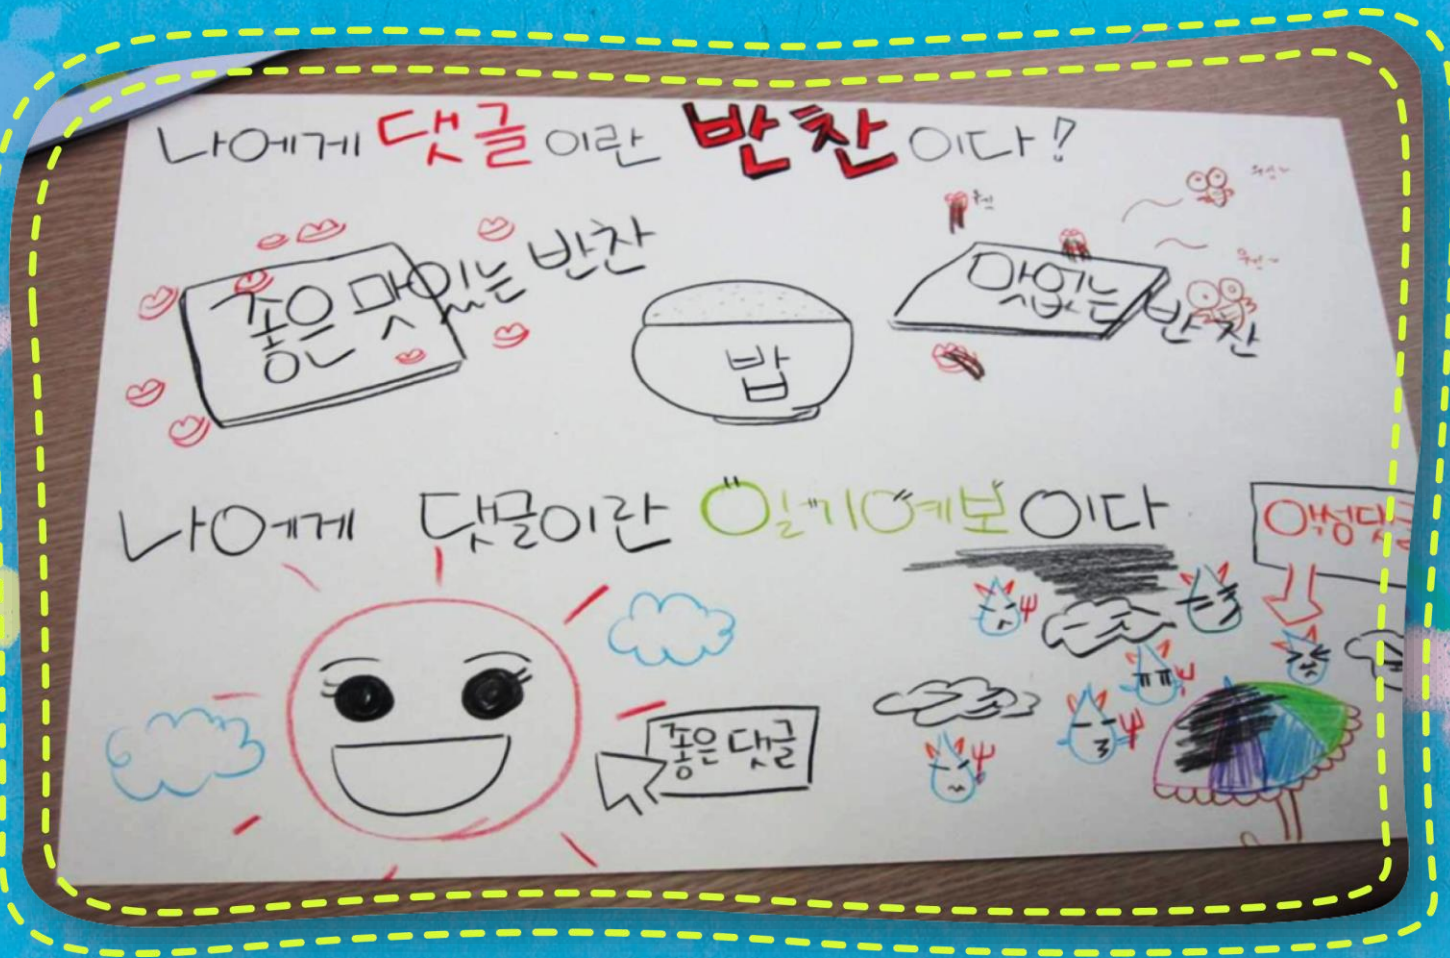 나에게 댓글이란 반찬이다!
좋은 맛있는 반찬
밥
맛없는 반찬
나에게 댓글이란 일기예보이다
악성댓글
좋은 댓글